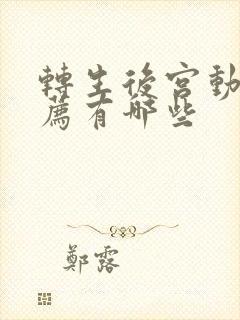 轉生後宮動
薦有哪些
鄭露